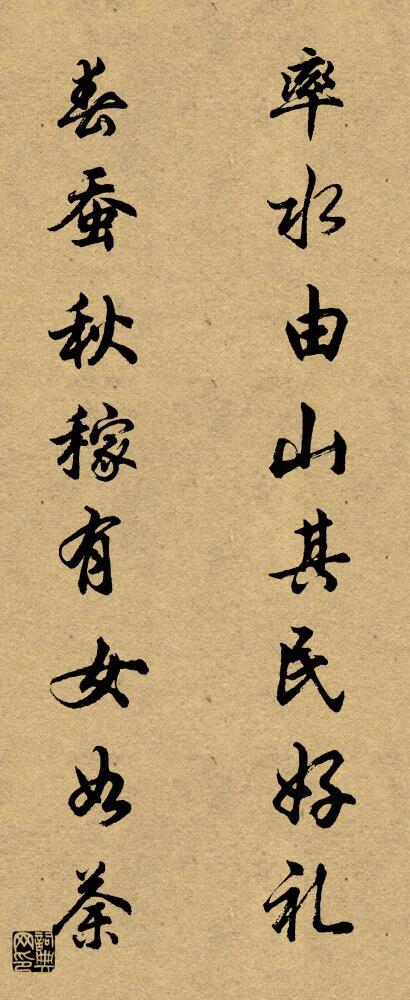 率水由山其民好礼
春蚕秋稼有女如荼
词典
网印